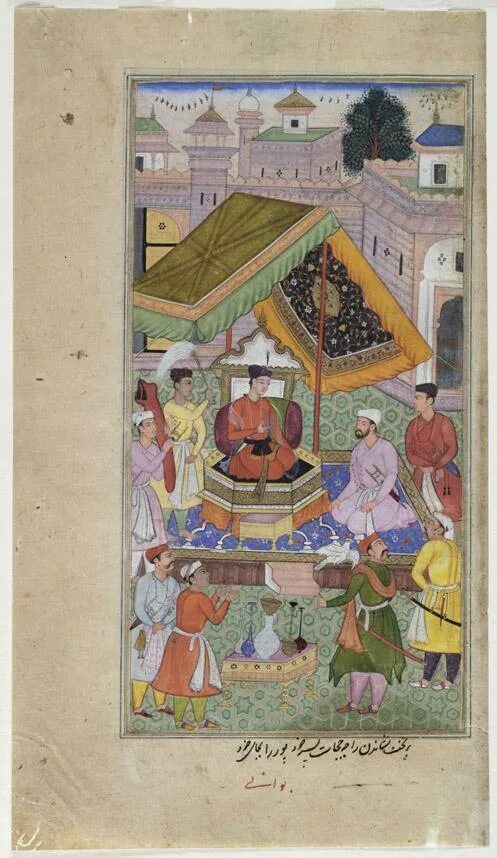 بر تخت نشاندن راجه ججات پسر خود پور را بجای خود